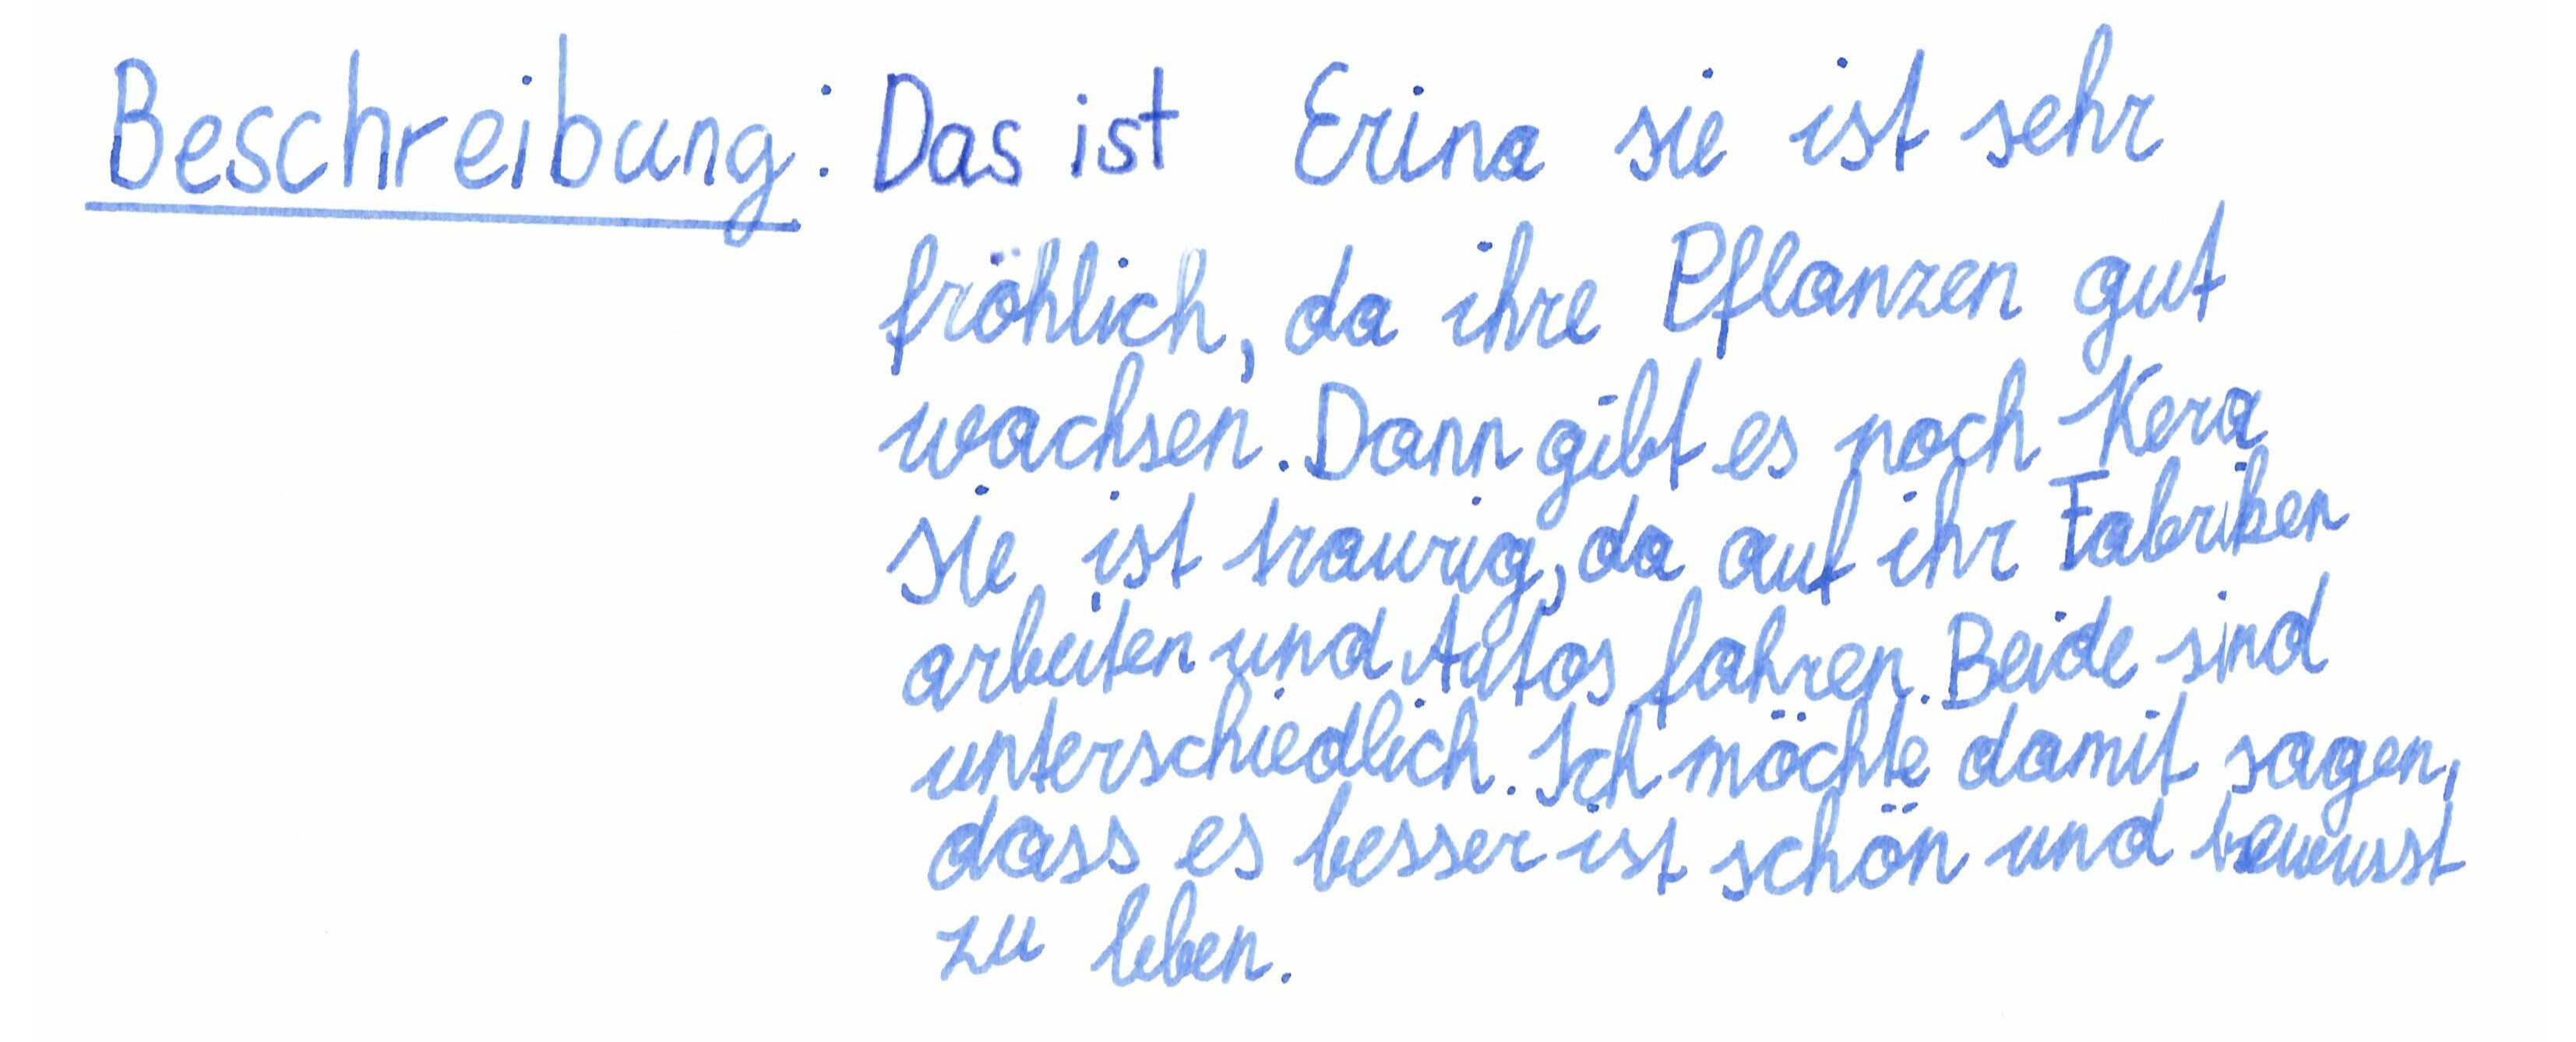 Beschreibung: Das ist Erina sie ist sehr
fröhlich, da ihre Pflanzen gut
wachsen. Dann gibt es noch Kera
sie ist traurig, da auf ihr Fabriken
arbeiten und Autos fahren. Beide sind
unterschiedlich. Ich möchte damit sagen,
dass es besser ist schön und bewusst
zu leben.